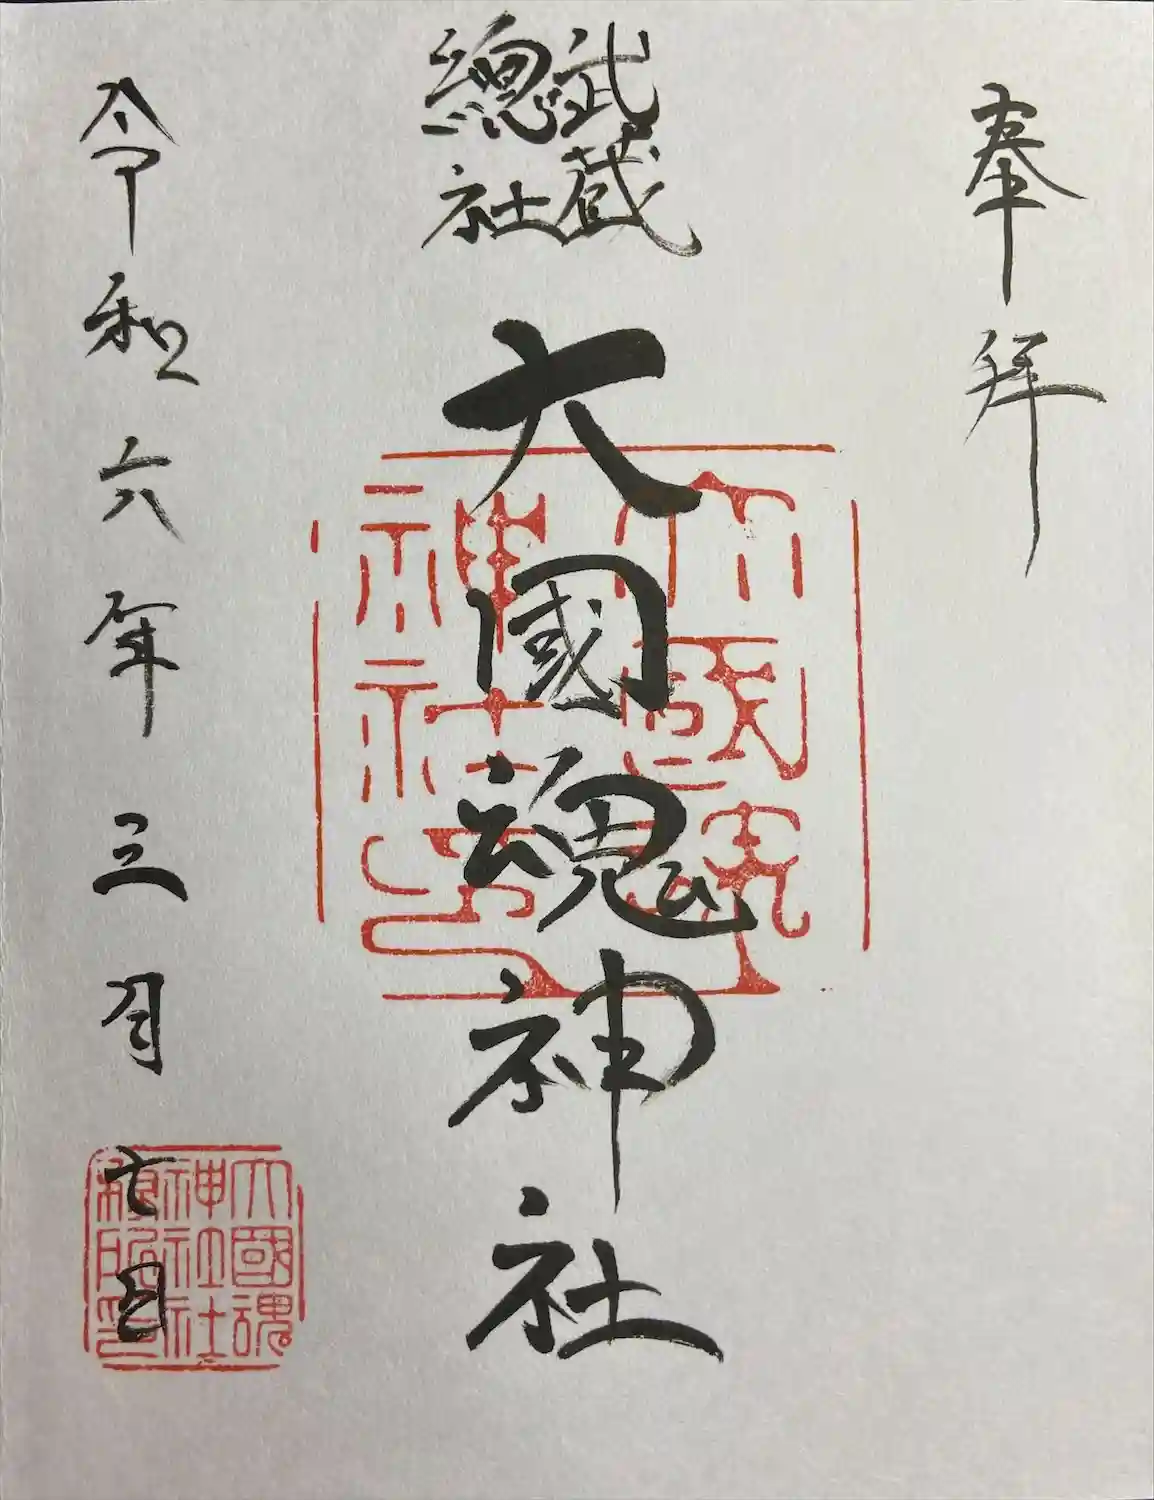 奉拝
武蔵
總社
大國魂神社
令和六年三月七日
大國魂
神社之
大國魂
神社社
務所印